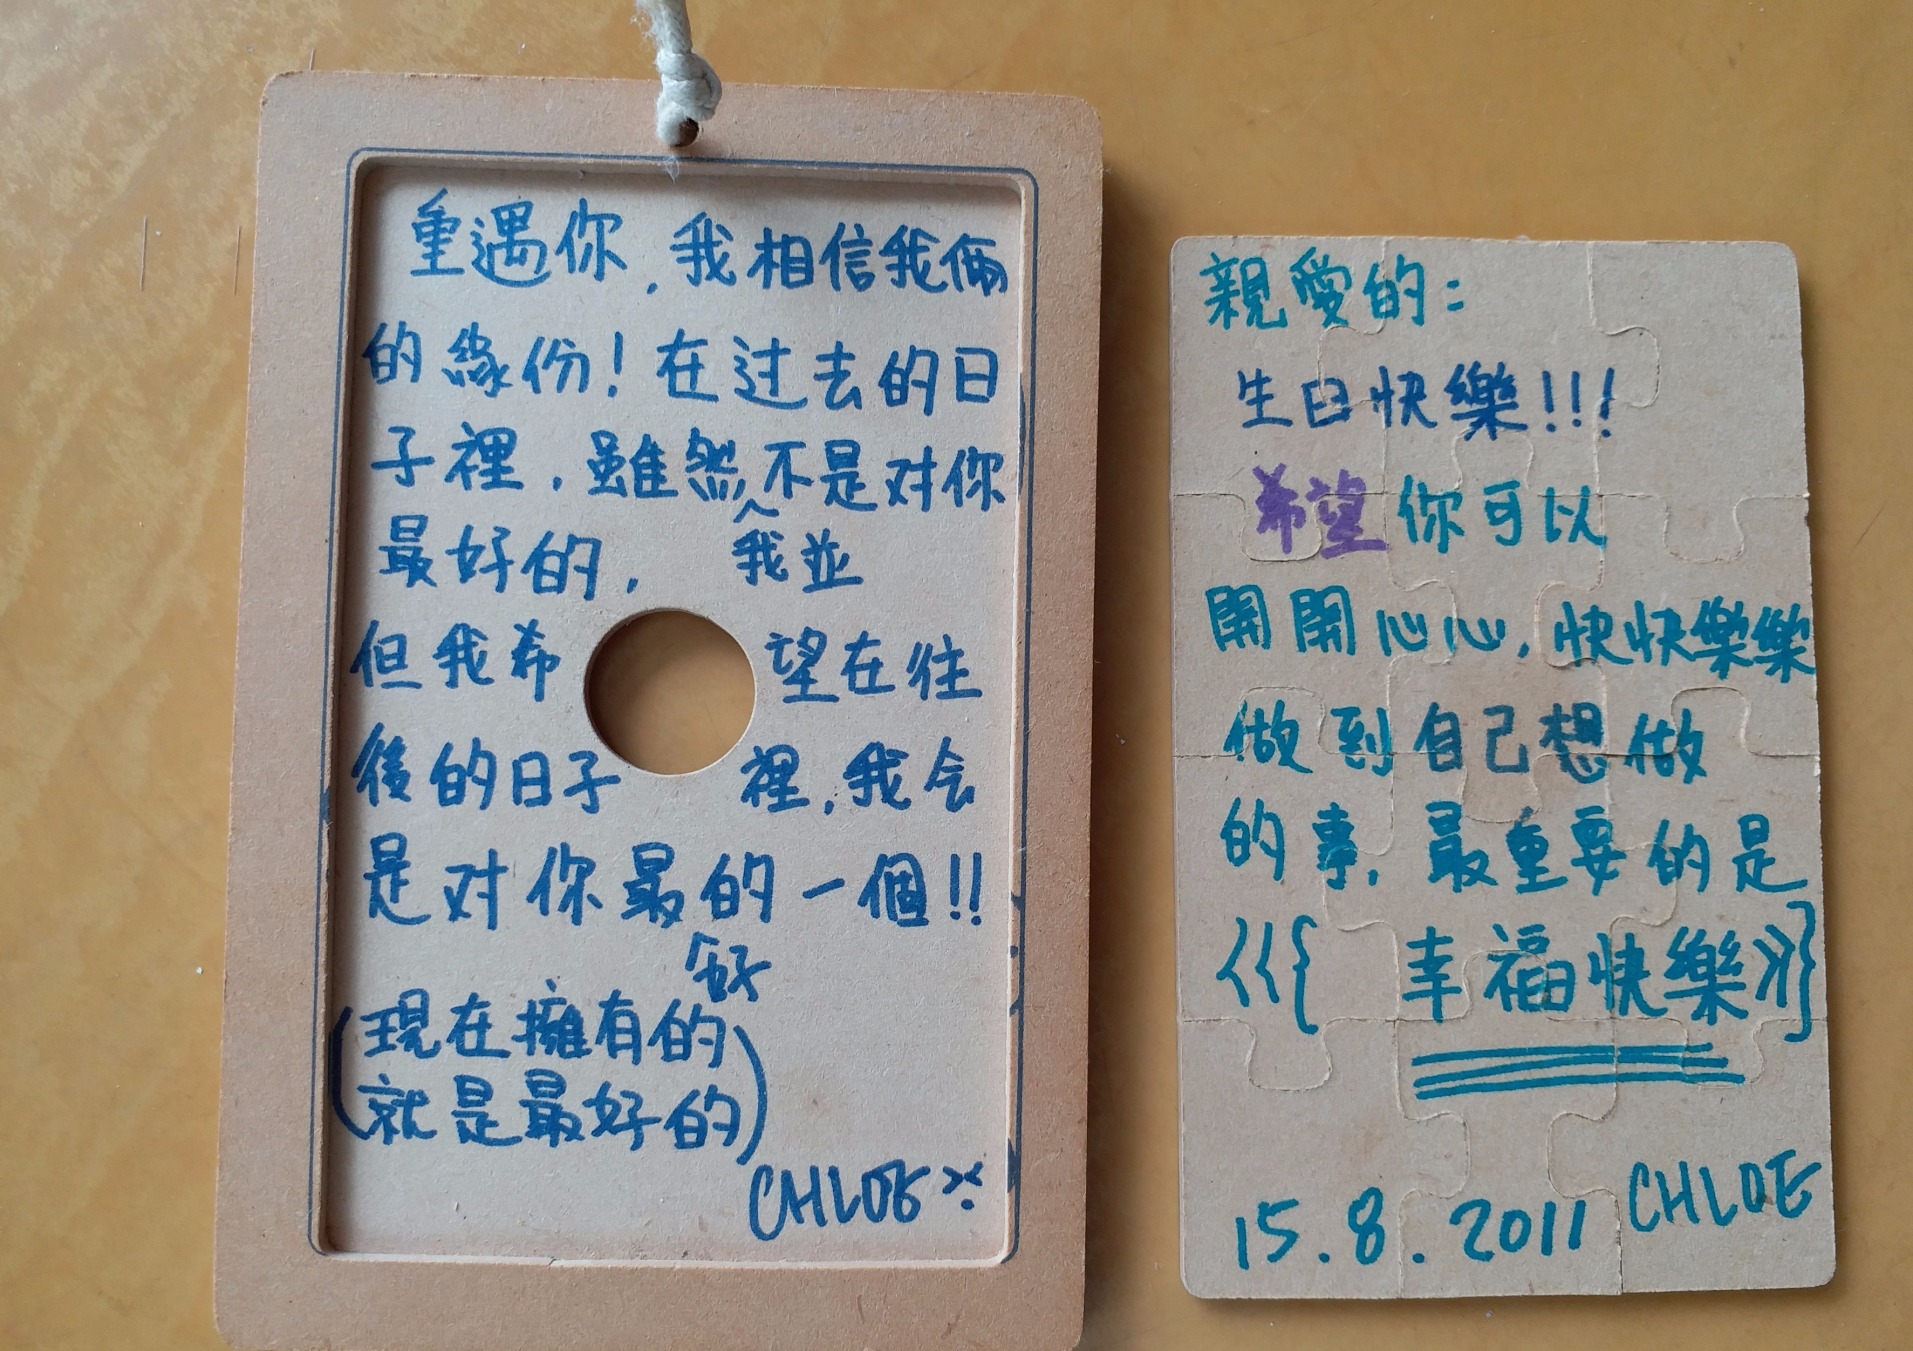 重遇你，我相信我倆
的緣份！在过去的日
子裡，雖然不是对你
^我並
最好的，
但我希望在往
後的日子裡，我会
是对你最的一個!!
好
(現在擁有的
就是最好的)
CHLOE
親愛的：
生日快樂!!!
希望你可以
開開心心，快快樂樂
做到自己想做
的事，最重要的是
《{ 幸福快樂》}
15.8.2011 CHLOE